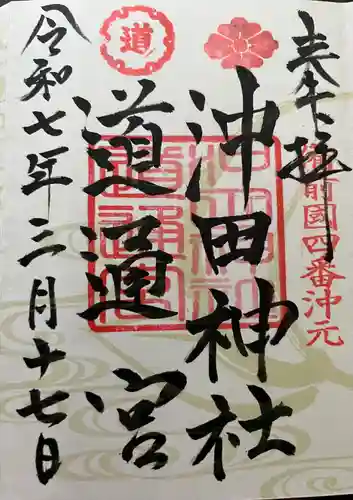 奉拝
備前國四番沖元
沖田神社
道通宮
道
令和七年三月十七日